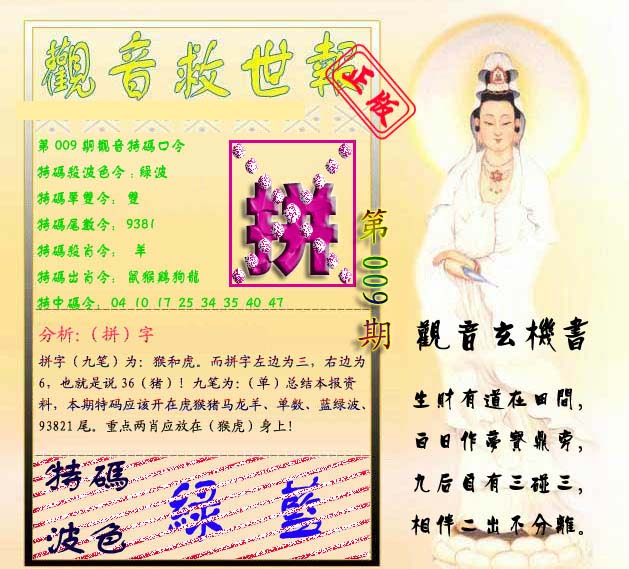 觀音救世報
正版
第009期觀音特碼口令
特碼殺波色令:綠波
特碼單雙令: 雙
特碼尾數令: 9381
特碼殺肖令: 羊
特碼出肖令: 鼠猴鷄狗龍
特中碼令: 04 10 17 25 34 35 40 47
拼
第009期
分析:(拼)字
拼字(九笔)为:猴和虎。而拼字左边为三,右边为
6,也就是说36(猪)!九笔为:(单)总结本报资
料,本期特码应该开在虎猴猪马龙羊、单数、蓝绿波、
93821尾。重点两肖应放在(猴虎)身上!
特碼
波色
綠 藍
觀音玄機書
生財有道在田間,
百日作夢賢鼎旁,
九后目有三碰三,
相伴二出不分離。